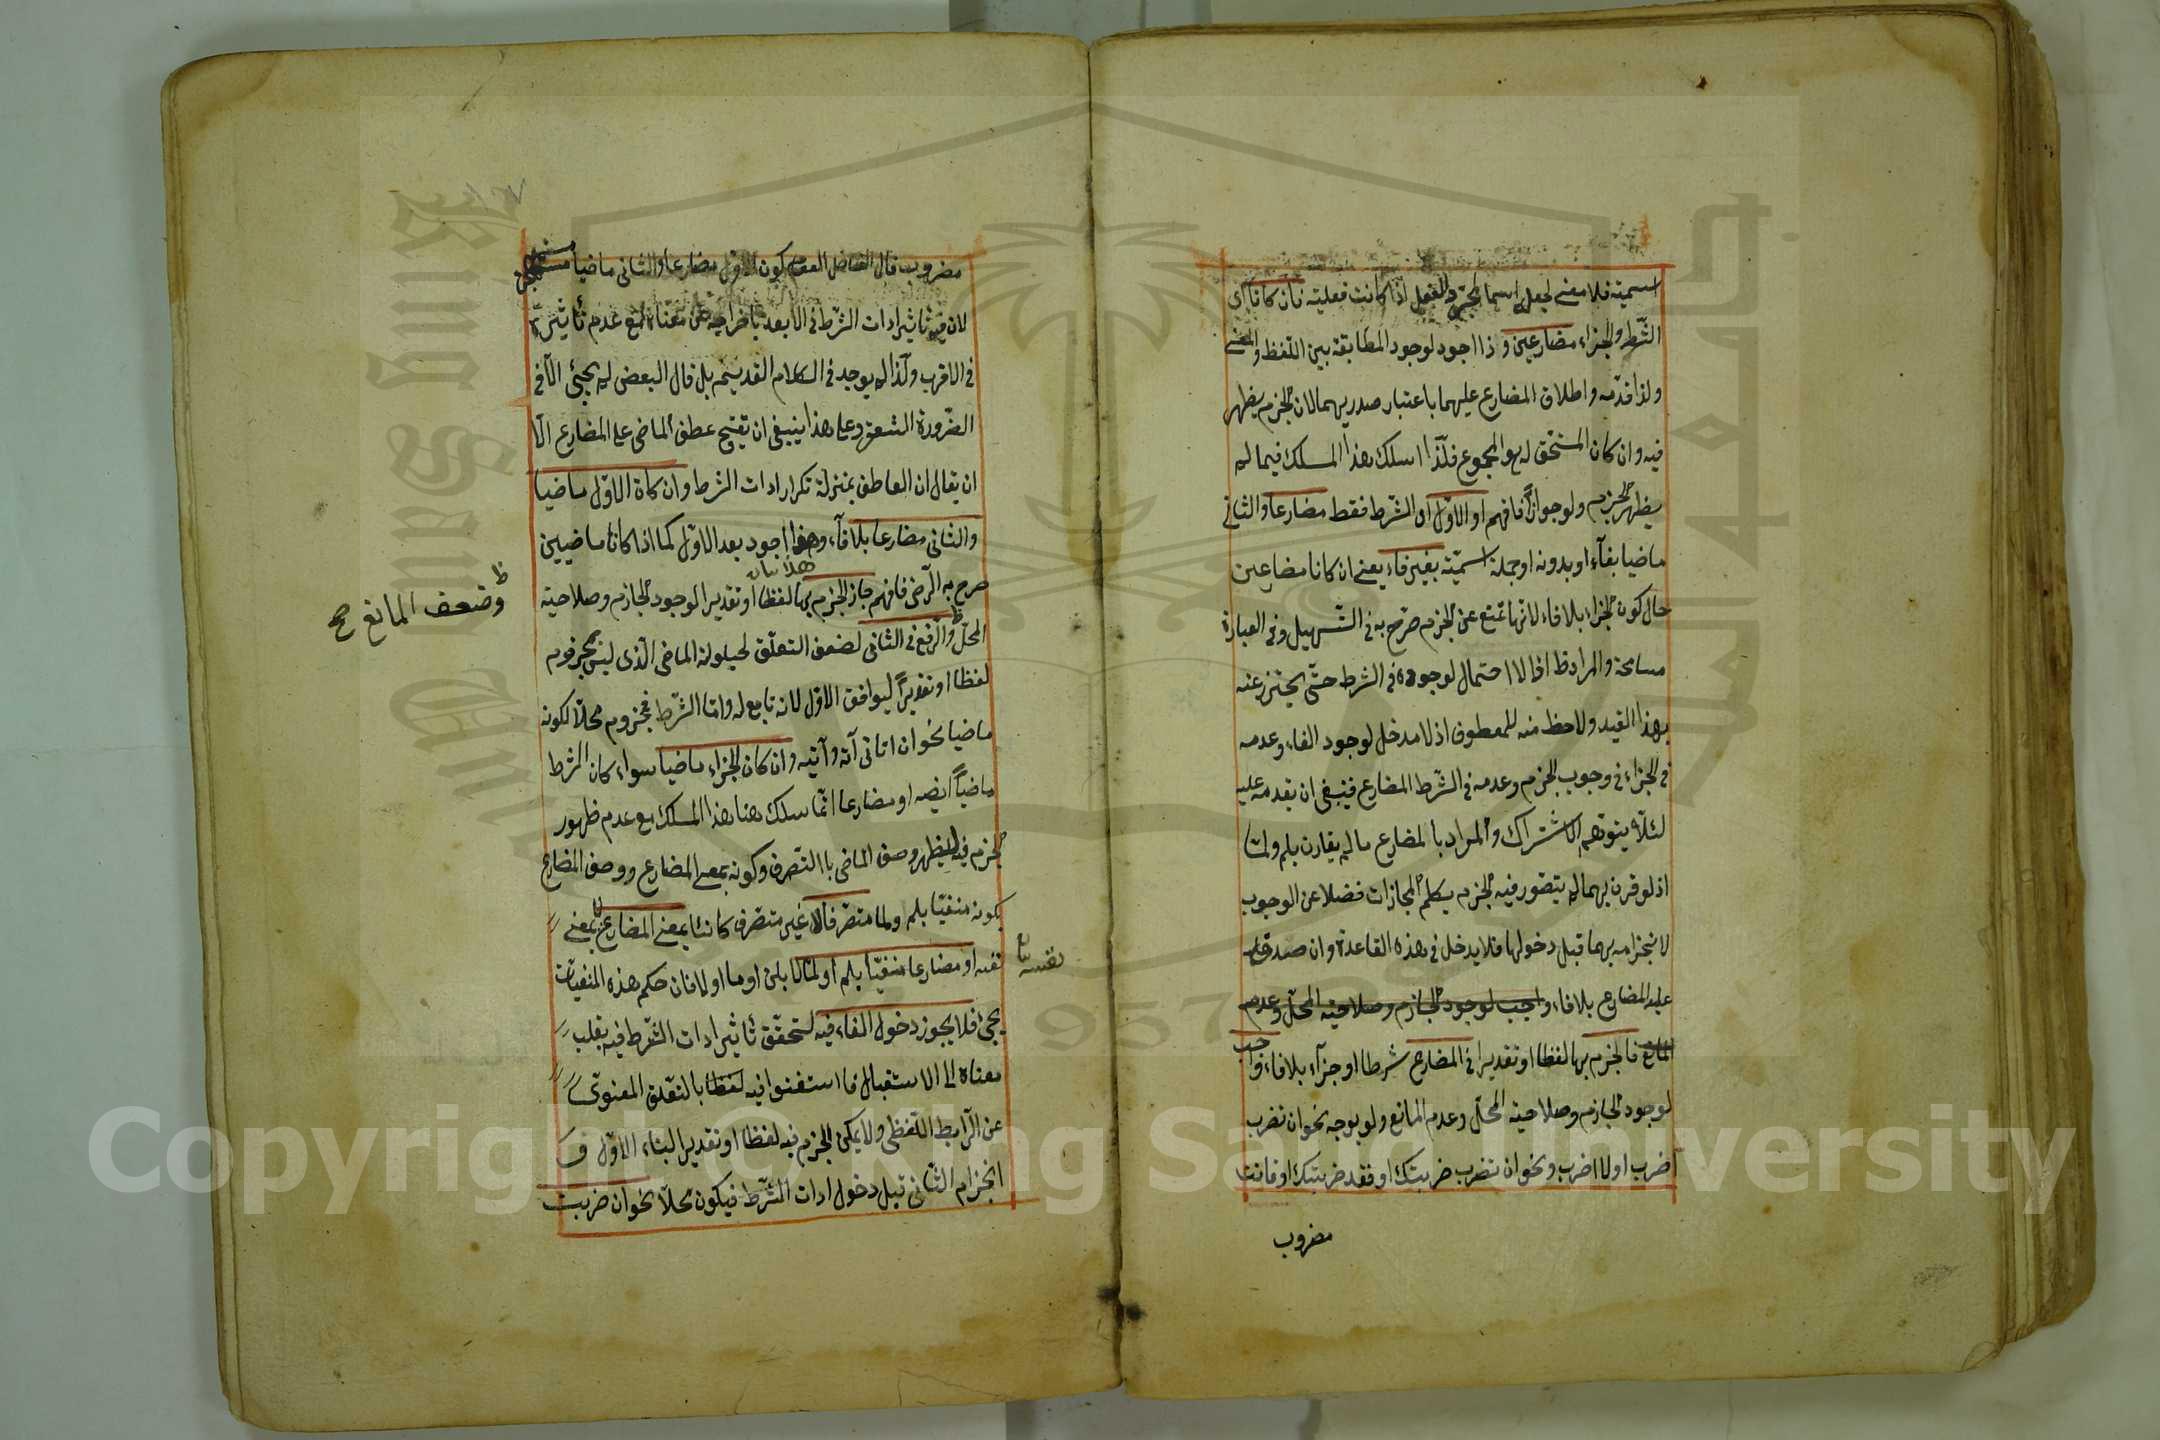 اسمية فلا معنى لجعل اسما لجزء الفعل اذا كانت فعلية فان كانا اى
الشرط والجزاء مضارعين وذا اجود لوجود المطابقة بين اللفظ والمعنى
ولذا قدمه واطلاق المضارع عليهما باعتبار صدريهما لان الجزم يظهر
فيه وان كان المستحق له هو المجموع فلذا اسلك هذا المسلك فيما لم
يظهر الجزم ولوجوازا فافهم او الاول اى الشرط فقط مضارعا والثانى
ماضيا بفاء او بدونه او جملة اسمية بغير فاء يعنى ان كانا مضارعين
حال كون الجزاء بلا فاء لانها تمنع عن الجزم صرح به فى التسهيل وفى العبارة
مسامحة والمراد ظ اذ لا احتمال لوجوده فى الشرط حتى يحترز عنه
بهذا القيد ولا حظ منه للمعطوف اذ لا مدخل لوجود الفاء وعدمه
فى الجزاء فى وجوب الجزم وعدمه فى الشرط المضارع فينبغى ان يقدمه عليه
لئلا يتوهم الاشتراك والمراد بالمضارع ما لم يقارن بلم ولما
اذ لو قرن بهما لم يتصور فيه الجزم بكلم المجازات فضلا عن الوجوب
لانجزامه بهما قبل دخولها فلا يدخل فى هذه القاعدة وان صدق
عليه المضارع بلا فاء واجب لوجود الجازم وصلاحية المحل وعدم
المانع فالجزم بها لفظا او تقديرا فى المضارع شرطا او جزاء بلا فاء واجب
لوجود الجازم وصلاحية المحل وعدم المانع ولو بوجه نحو ان تضرب
اضرب او لا اضرب ونحو ان تضرب ضربتك او فقد ضربتك او فانت
مضروب
مضروب قال الفاضل العصام كون الاول مضارعا والثانى ماضيا مستهجن
لان فيه تأثير ادات الشرط فى الابعد باخراجه عن معناه مع عدم تأثيره
فى الاقرب ولذا لم يوجد فى الكلام القديم بل قال البعض لم يجئ الا فى
الضرورة الشعر وعلى هذا ينبغى ان يقبح عطف الماضى على المضارع الا
ان يقال ان العاطف بمنزلة تكرار ادات الشرط وان كان الاول ماضيا
والثانى مضارعا بلا فاء وهذا اجود بعد الاول كما اذا كانا ماضيين
صرح به الرضى فافهم جاز الجزم بها لفظا او تقديرا لوجود الجازم وصلاحية
المحل والرفع فى الثانى لضعف التعلق لحيلولة الماضى الذى ليس بمجزوم
وضعف المانع صح
لفظا او تقديرا ليوافق الاول لانه تابع له واما الشرط فمجزوم محلا لكونه
ماضيا نحو ان اتانى آته وآتيه وان كان الجزاء ماضيا سواء كان الشرط
ماضيا ايضه او مضارعا انما سلك هنا هذا المسلك مع عدم ظهور
الجزم فيه ليظهر وصف الماضى بالتصرف وكونه بمعنى المضارع ووصف المضارع
بكونه منفيا بلم ولما متصرفا لا غير متصرف كائنا بمعنى المضارع لا بمعنى
نفسه او مضارعا منفيا بلم او لما لا بلن او ما او لا فان حكم هذه المنفيات
نفسه
يجئ فلا يجوز دخول الفاء فيه لتحقق تأثير ادات الشرط فيه بقلب
معناه الى الاستقبال فاستغنوا فيه لفظا بالتعلق المعنوى
عن الرابط اللفظى ولا يمكن الجزم فيه لفظا او تقديرا لبناء الاول و
انجزام الثانى قبل دخول ادات الشرط فيكون محلا نحو ان ضربت
Copyright © King Saud University